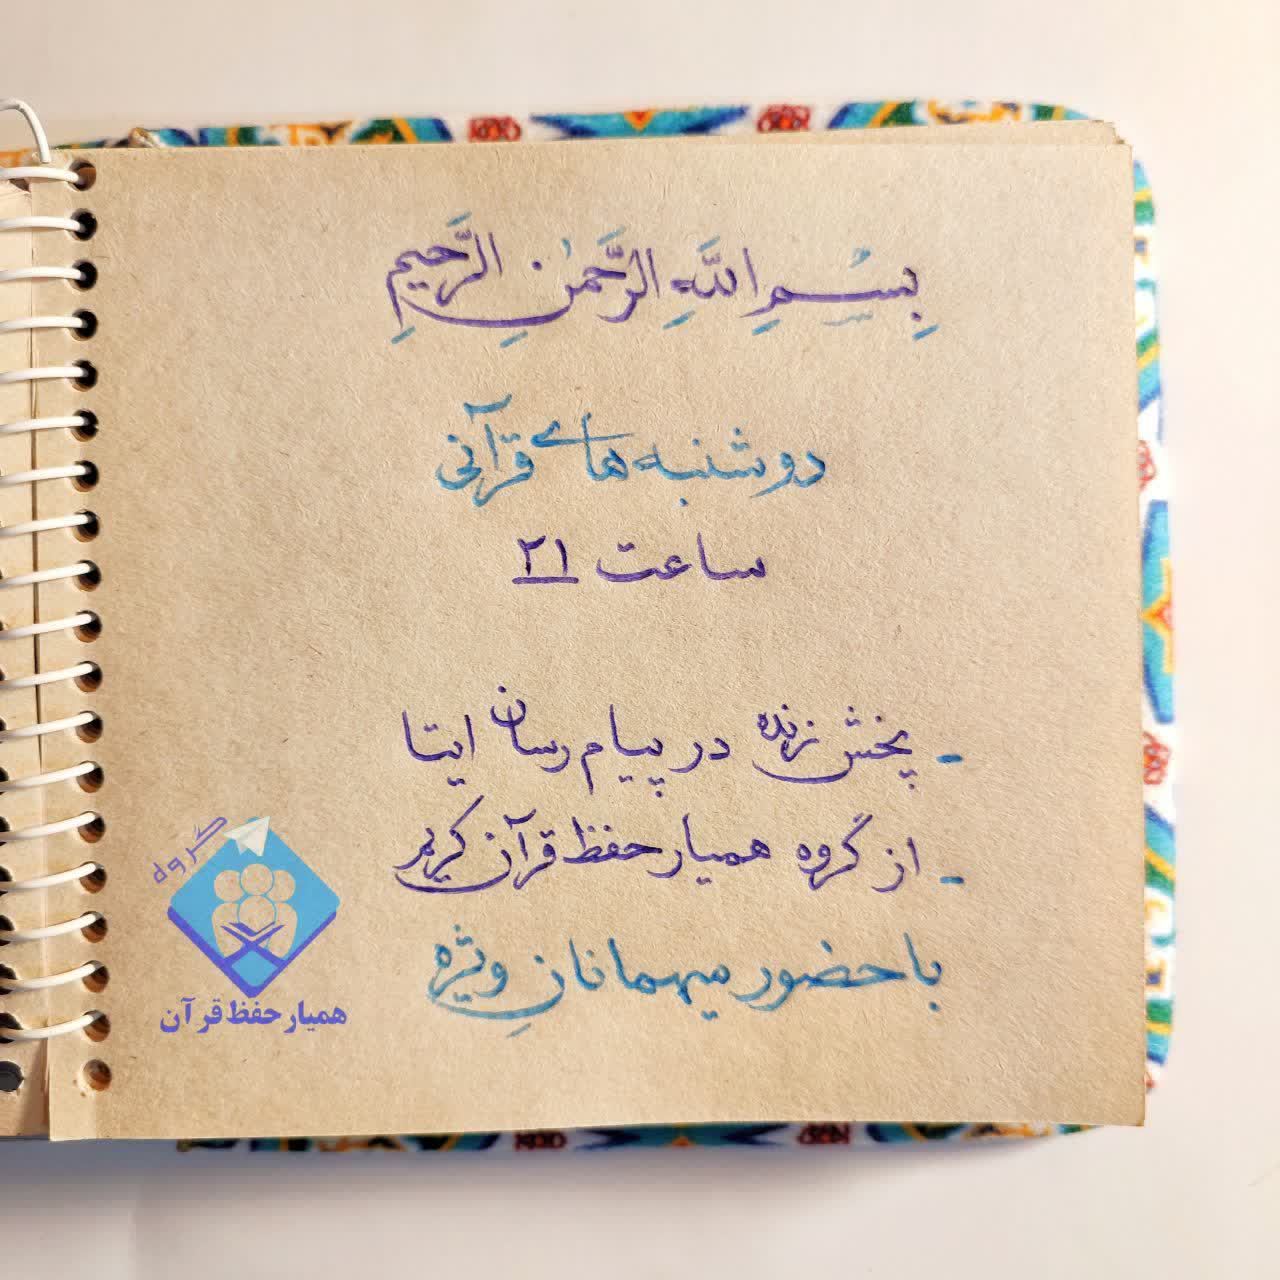 بِسْمِ اللَّهِ الرَّحْمٰنِ الرَّحِيمِ
دوشنبه های قرآنی
ساعت ۲۱
- پخش زنده در پیام رسان ایتا
- از گروه همیار حفظ قرآن کریم
با حضور میهمانانِ ویژه
گروه
همیار حفظ قرآن